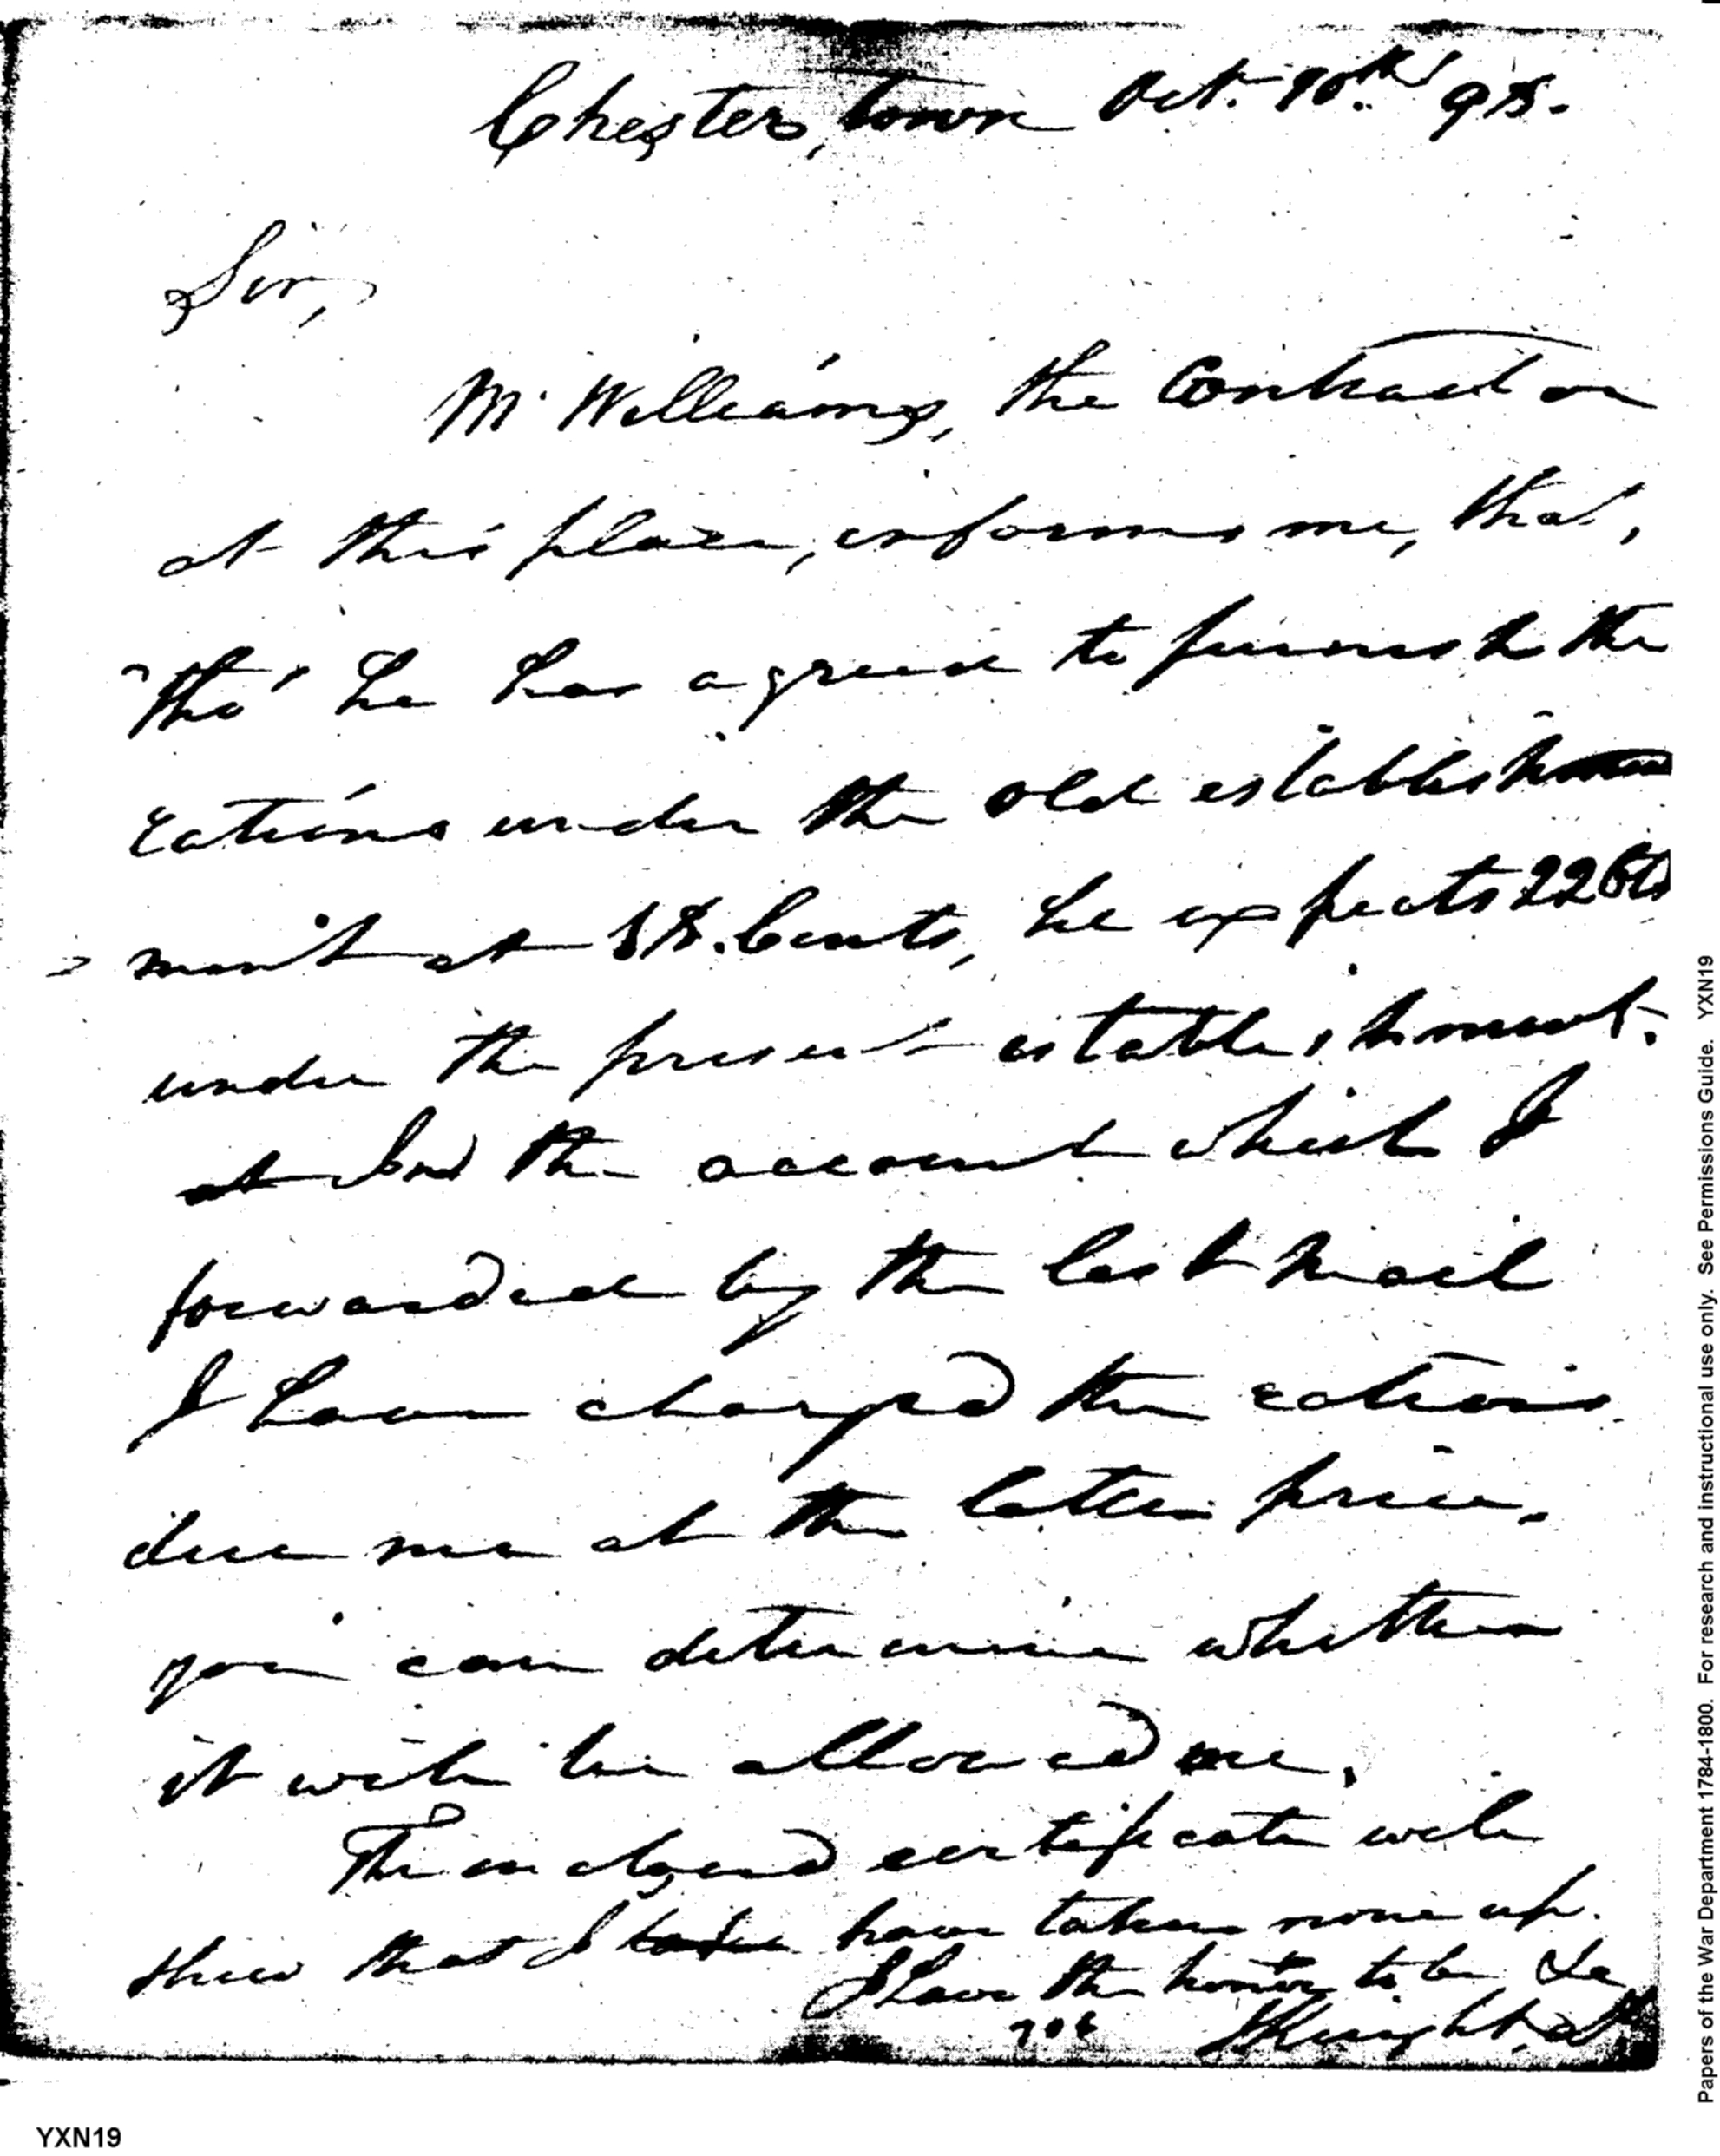 Chester, town Oct. 10th 98.
Sir,
Mr Williams, the Contractor
at this place, informs me, that,
tho' he has agreed to furnish the
rations under the old establish
ment at 18. Cents, he expects 22 Cts
under the present establishment.
the account which I
forwarded by the last Mail
I have charged the rations
due me at the latter price,
you can determine whether
it will be allowed me.
The enclosed certificate will
shew that I have taken none up.
I have the honor to be &c
J Knight,
YXN19
Papers of the War Department 1784-1800. For research and instructional use only. See Permissions Guide. YXN19